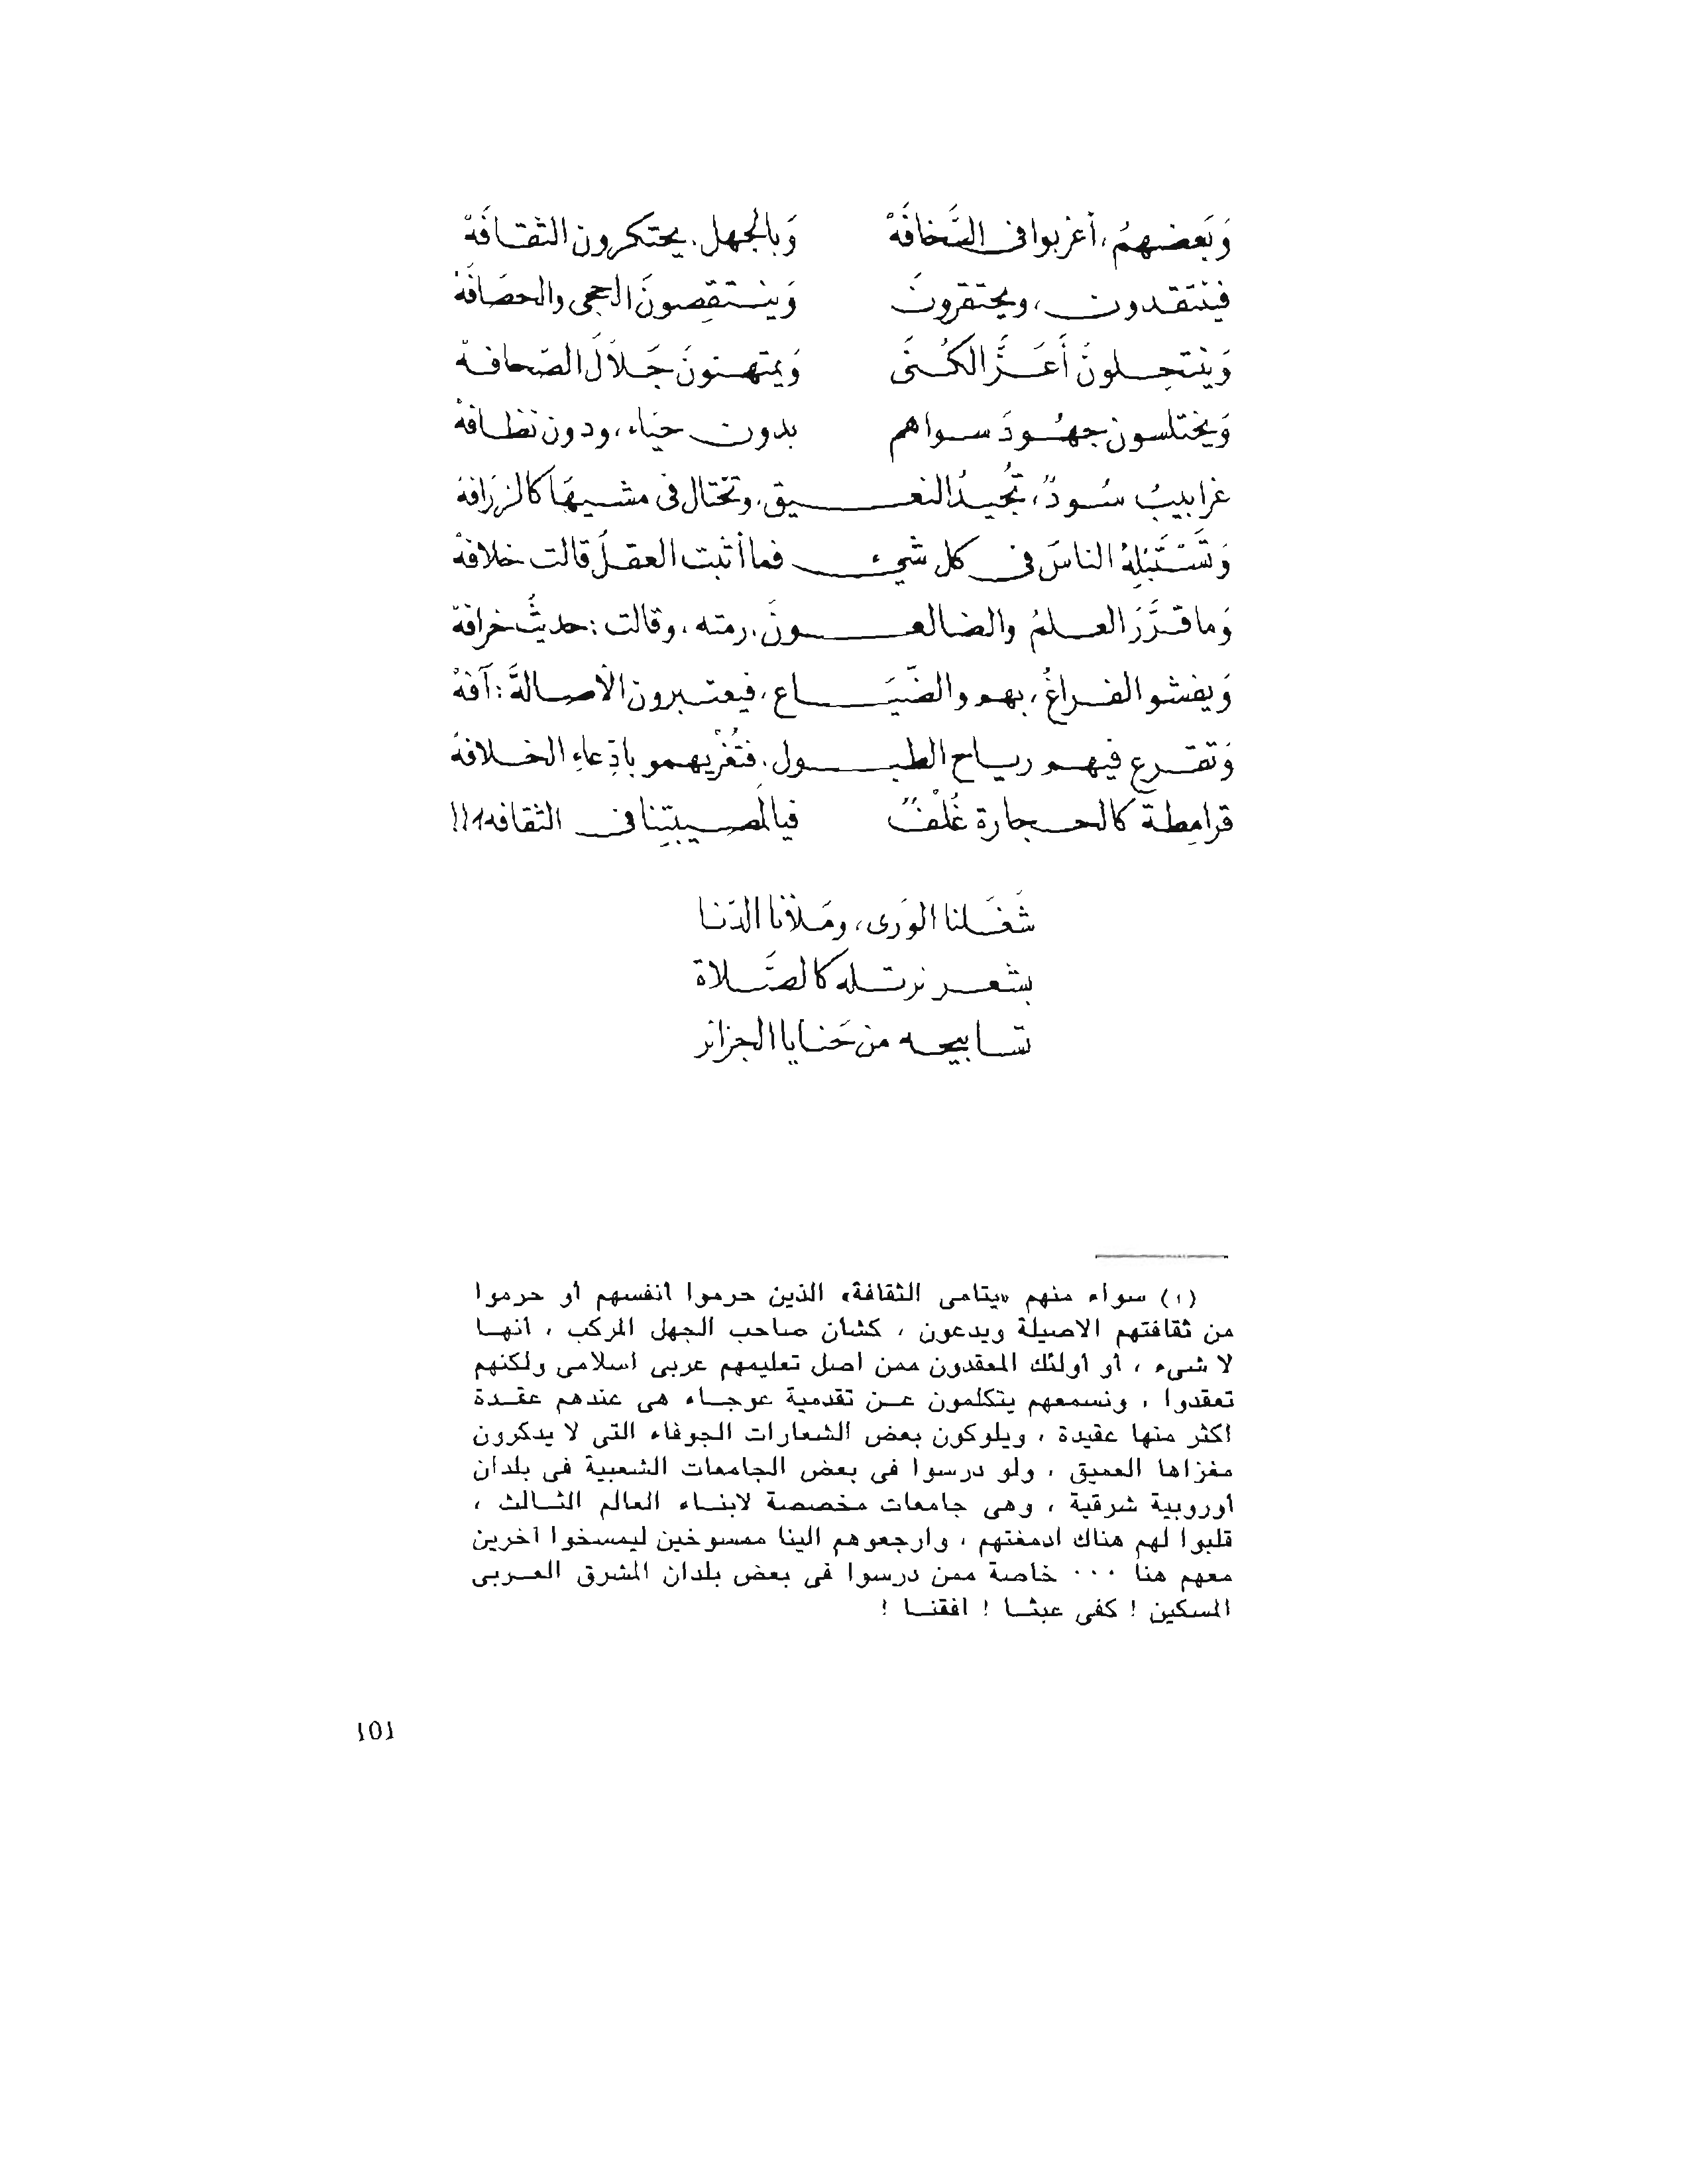 وَبَعضهمُ، أغربوا فى السَّخافَهْ وَبالجهل. يحتكرون الثقافَهْ
فينتقدون، ويحتقرونَ وَينتقصونَ الحجى والحصَافَهْ
وَينتحلونَ أَعَزَّ الكُنَى وَيمتهنونَ جَلاَلَ الصّحافهْ
وَيختلسون جهُودَ سواهم بدون حيَاء، ودون نظافهْ
غرابيبُ سُودٌ، تُجيدُ النعيق. وتختال فى مشيهَا كالزرَافهْ
وَتَسْتَبْلِهُ الناسَ فى كل شىء فما أثبت العقلُ قالت خلافهْ
وَما قرَّرَ العلمُ والضالعونَ. رمته، وقالت: حديثُ خرافهْ
وَيفشو الفراغُ، بهم والضّيَاع، فيعتبرون الأصالةَ: آفهْ
وَتقرع فيهم رياح الطبول. فتُغْريهمو بادّعاءِ الخلافهْ
قرامِطة كالحجارة غُلْفٌ فيا لَمصيبتِنا فى الثقافه١!!
شَغَلنا الوَرى، ومَلأنا الدّنا
بشعر نرتله كالصَّلاة
تسابيحه من حَنايا الجزائر
(١) سواء منهم «يتامى الثقافة» الذين حرموا أنفسهم أو حرموا
من ثقافتهم الاصيلة ويدعون ، كشأن صاحب الجهل المركب ، انهـا
لا شىء ، أو أولئك المعقدون ممن اصل تعليمهم عربى اسلامى ولكنهم
تعقدوا ، ونسمعهم يتكلمون عـن تقدمية عوجـاء هى عندهم عقـدة
اكثر منها عقيدة ، ويلوكون بعض الشعارات الجوفاء التى لا يدكرون
مغزاها العميق ، ولو درسوا فى بعض الجامعات الشعبية فى بلدان
أوروبية شرقية ، وهى جامعات مخصصة لابنـاء العالم الثـالث ،
قلبوا لهم هناك ادمغتهم ، وارجعوهم الينا ممسوخين ليمسخوا آخرين
معهم هنا ٠٠٠ خاصة ممن درسوا فى بعض بلدان المشرق العـربى
المسكين ! كفى عبثـا ! افقنـا !
١٥١